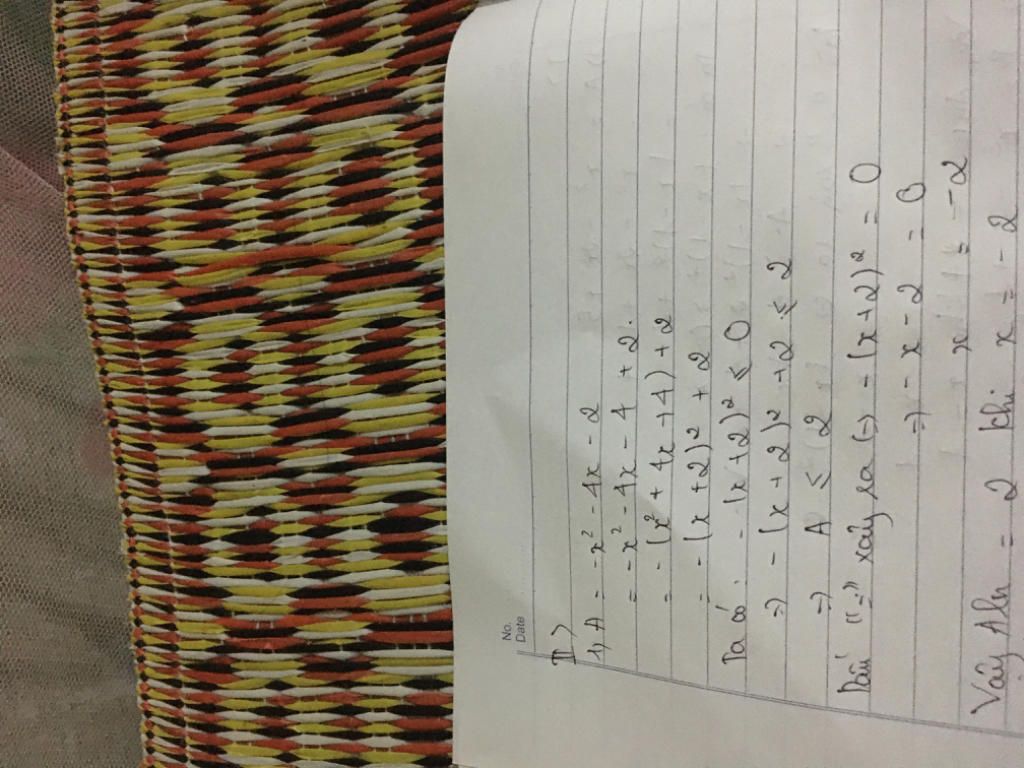 No.
Date
II>
1, A = -x² - 4x - 2
= -x² - 4x - 4 + 2.
= - (x² + 4x + 4) + 2
= - (x + 2)² + 2
Ta có: - (x + 2)² ≤ 0
=> - (x + 2)² + 2 ≤ 2
=> A ≤ 2
Dấu "=" xảy ra (=) - (x + 2)² = 0
=> - x - 2 = 0
x = -2
Vậy Aln = 2 khi x = -2